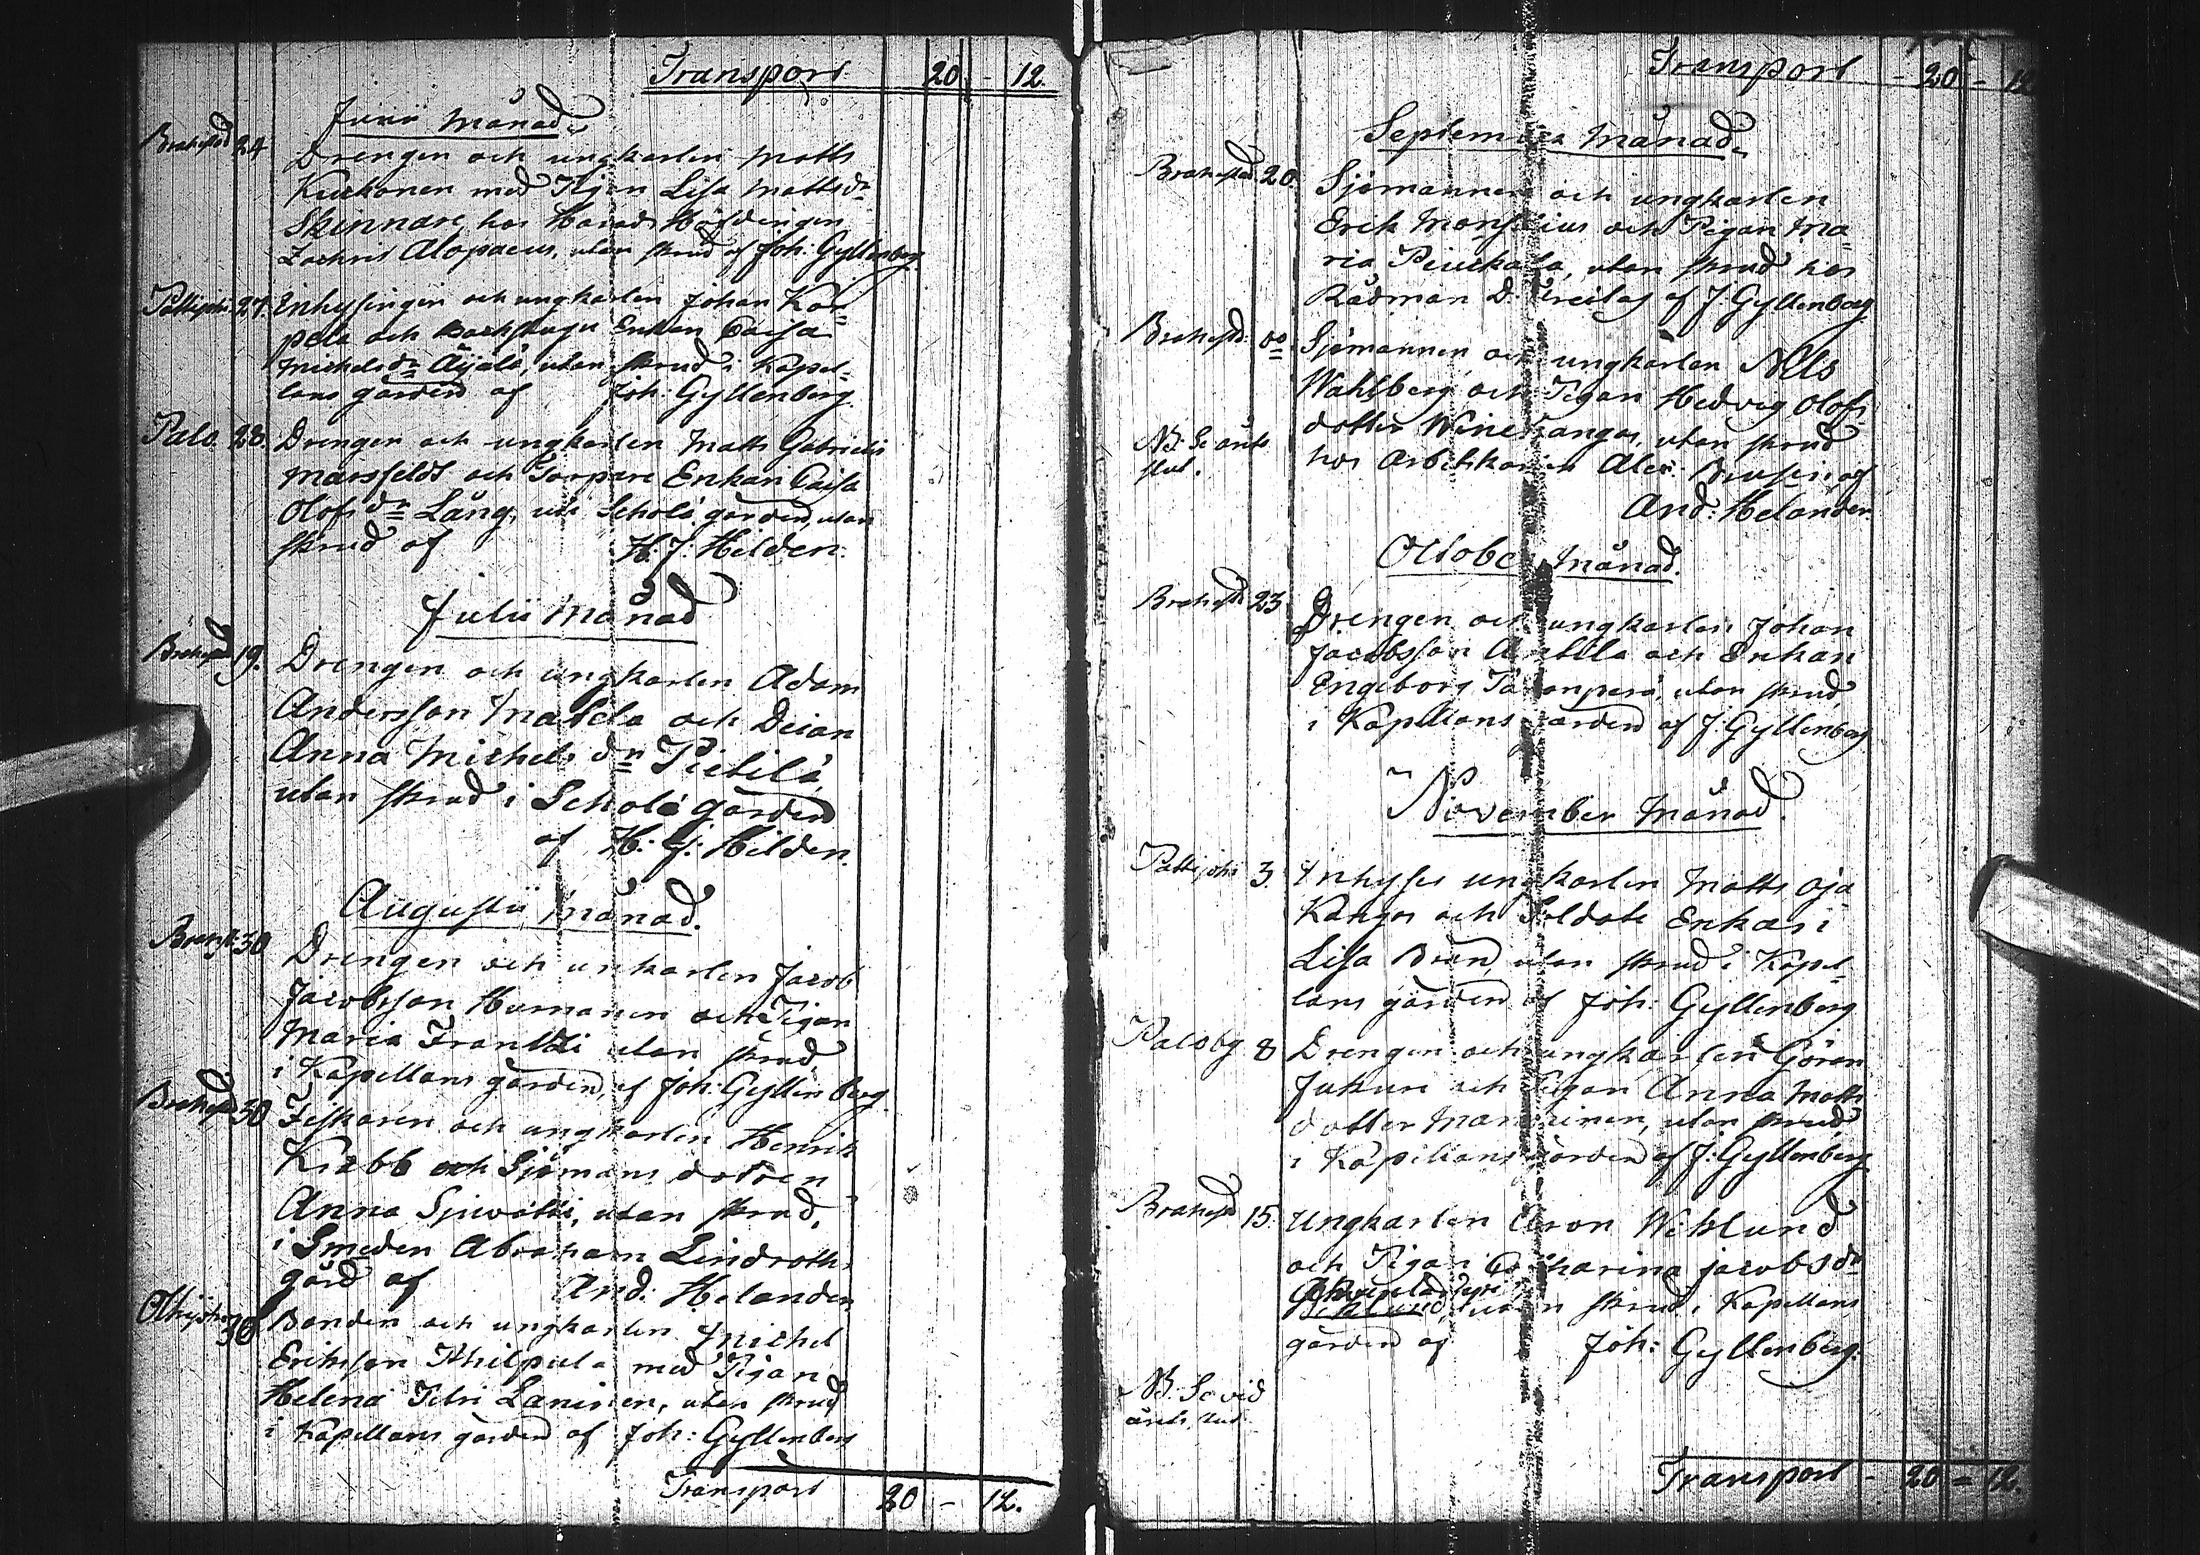 Transport 20 - 12.
Junii Månad.
Brahestad 24 Drengen och ungkarlen Matts
Kurkonen med Pigan Lisa Mattsdr
Skinnare, hos Herads Höfdingen
Zachris Alopaeus, utan skrud af Joh. Gyllenberg.
Pattijoki 27. Inhysingen och ungkarlen Johan Kor-
pela och Backstugu Enkan Caisa
Michelsdr Äijälä, utan skrud i Kapel-
lans gården af Joh: Gyllenberg.
Palo. 28. Drengen och ungkarlen Matts Gabriels
Marsfeldt och Torpare Enkan Caisa
Olofsdr Lång, uti Scholä gården, utan
skrud af H: J: Helden.
Julii Månad
Brahestad 19. Drengen och ungkarlen Adam
Andersson Matela och Deian
Anna Michelsdr Pietilä,
utan skrud i Scholä gården
af H: J: Hilden.
Augustii Månad.
Brahest: 30 Drengen och unkarlen Jacob
Jacobsson Humanen och Pigan
Maria Frantzi utan skrud
i Kapellans gården, af Joh: Gyllenberg.
Brahestad 30 Fiskaren och ungkarlen Henrik
Krabb och Sjömans dotren
Anna , utan skrud,
i Smeden Abraham Lindroths
gård af And: Helander
30 Bonden och ungkarlen Michel
Eriksson Khilpula med Pigan
Helena Petri Laninen, utan skrud
i Kapellans gården af Joh: Gyllenberg
Transport 20 - 12.
Transport - 20 - 12
September Månad.
Brahestad 20. Sjömannen och ungkarlen
Erik och Pigan Ma-
ria , utan skrud hos
Rådman D. Freitag af J: Gyllenberg.
Brahestd: do Sjömannen och ungkarlen Nils
Wahlberg och Pigan Hedvig Olofs
dotter Winekangas, utan skrud
NB: Se årets
slut.
hos Arbetskarlen Alex: af
And: Helander.
October Månad.
Brahestd 23 Drengen och ungkarlen Johan
Jacobsson Anttila och Enkan
Engeborg , utan skrud
i Kapellans gården af J: Gyllenberg
November Månad.
Pattijoki 3. Inhyses ungkarlen Matts Oja
Kangas och Soldats Enkan
Lisa Brand, utan skrud i Kapel-
lans gården af Joh: Gyllenberg
Paloby 8 Drengen och ungkarlen Göran
Jukuri och Pigan Anna Matts
dotter Manninen, utan skrud,
i Kapellans gården af J: Gyllenberg
Brahestd 15. Ungkarlen Aron Wiklund
och Pigan Catharina Jacobsdr
utan skrud i Kapellans
gården af Joh: Gyllenberg.
NB: Se vid
årets slut
Transport - 20 - 12.